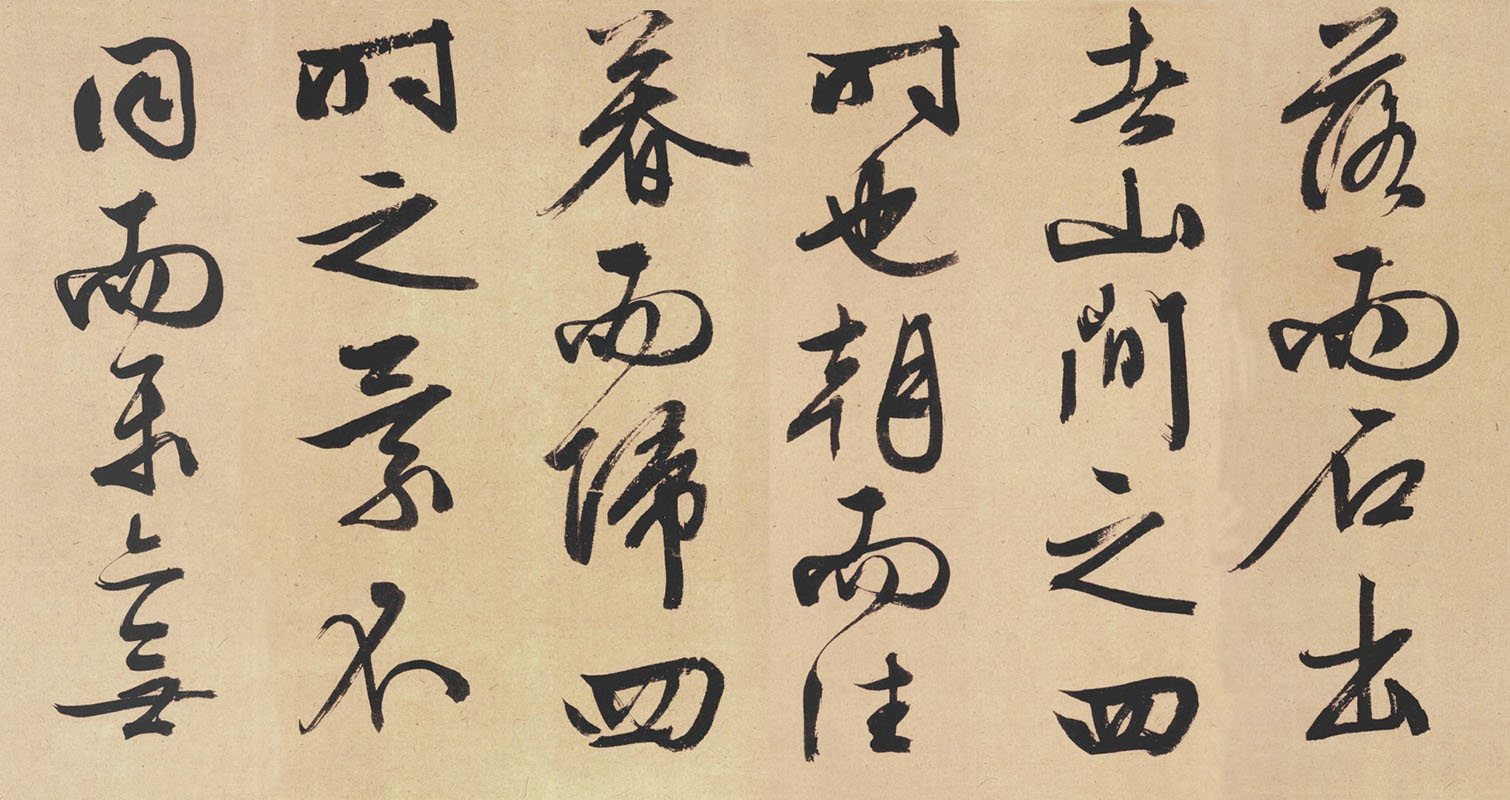 落而石出
者山間之四
时也朝而往
暮而歸四
时之景不
同而樂亦無